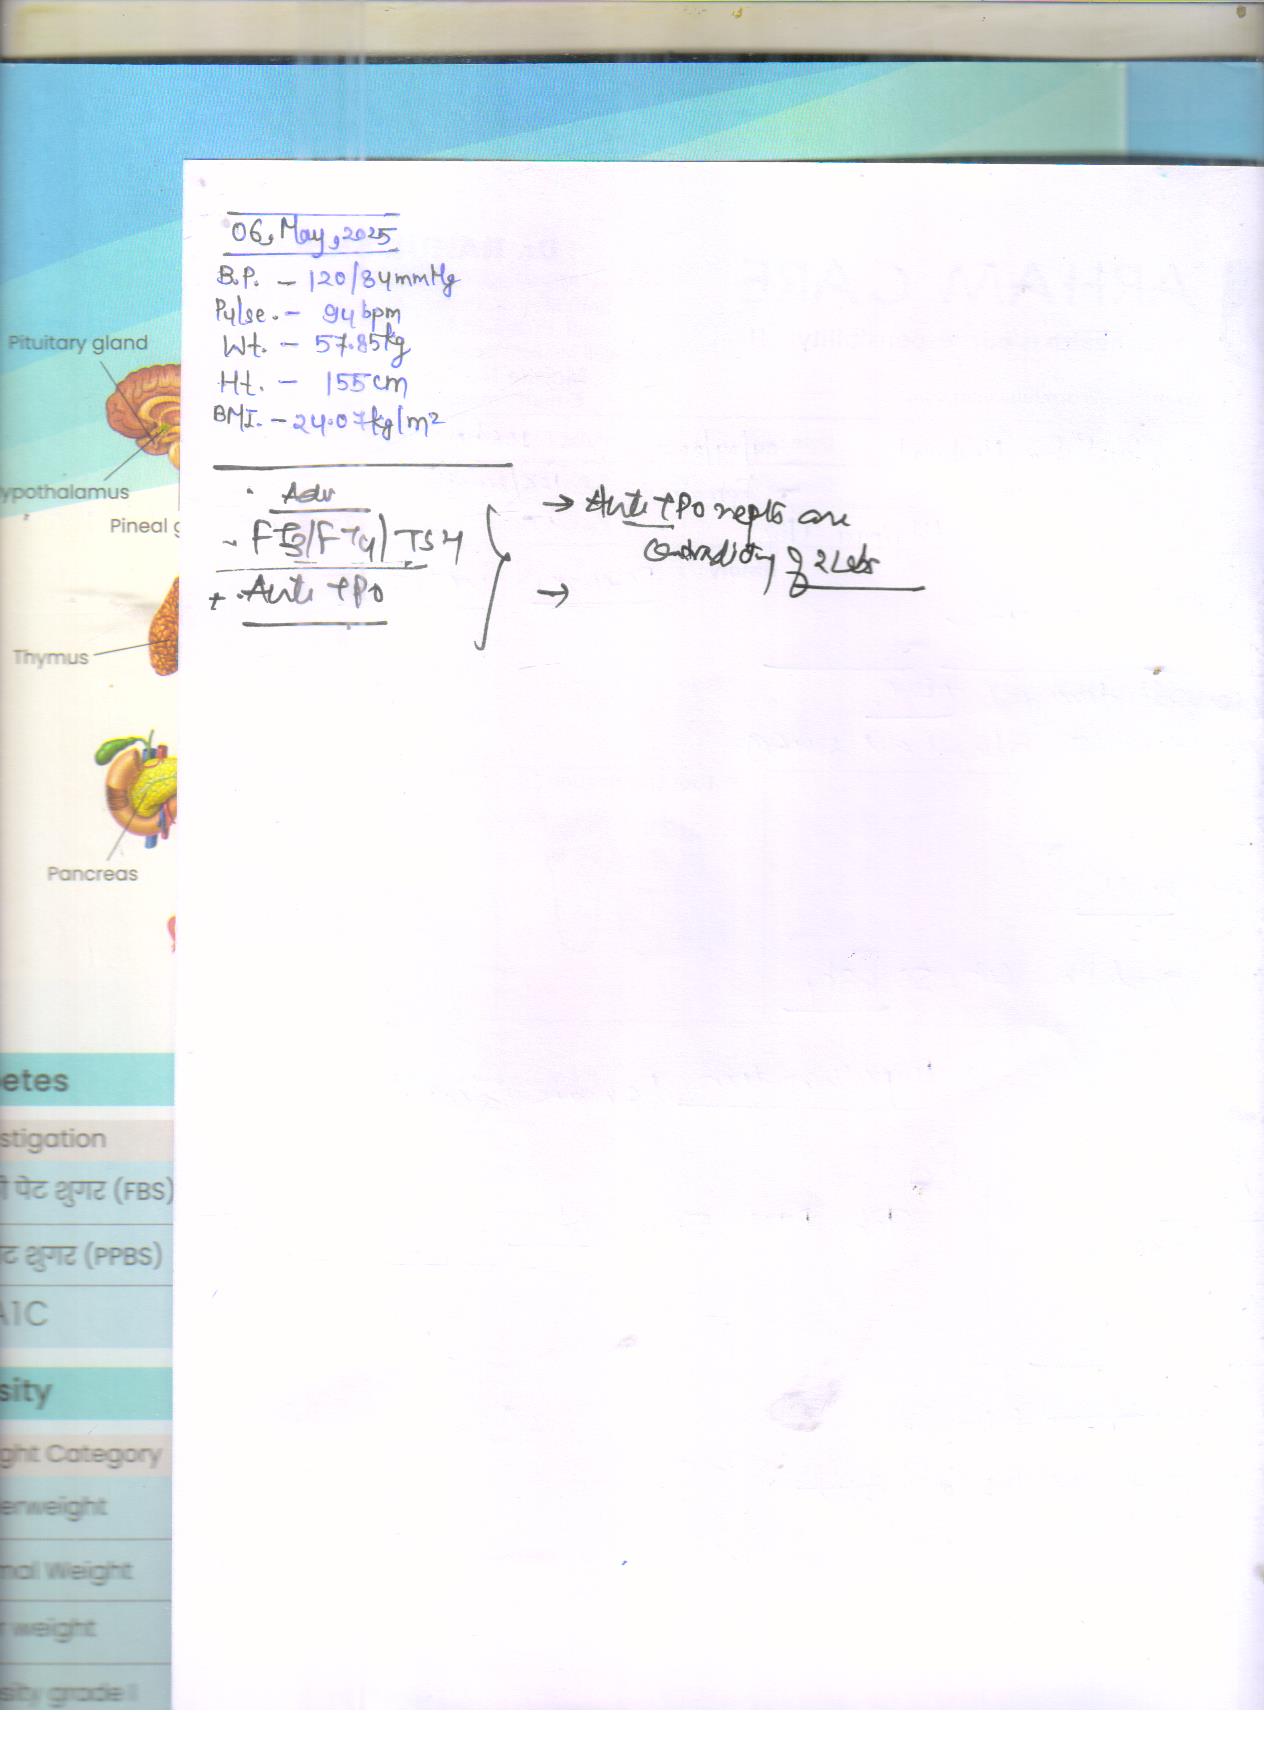 06, May, 2025
B.P. - 120/84 mmHg
Pulse. - 94 bpm
Wt. - 57.85kg
Ht. - 155 cm
BMI. - 24.07kg/m²
Adv
- FT3/FT4/TSH
+ . Anti TPO
→ Anti TPO repts are
Contradictory of 2 Labs
→
Pituitary gland
ypothalamus
Pineal g
Thymus
Pancreas
etes
stigation
पेट शुगर (FBS)
ट शुगर (PPBS)
A1C
sity
ght Category
erweight
mal Weight
r weight
sity grade I